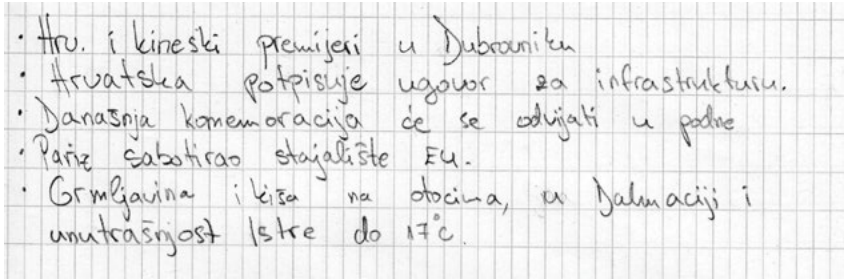 · Hrv. i kineski premijeri u Dubrovniku
· Hrvatska potpisuje ugovor za infrastrukturu.
· Današnja komemoracija će se odvijati u podne
· Pariz sabotirao stajalište EU.
· Grmljavina i kiša na otocima, u Dalmaciji i
unutrašnjost Istre do 17°C.